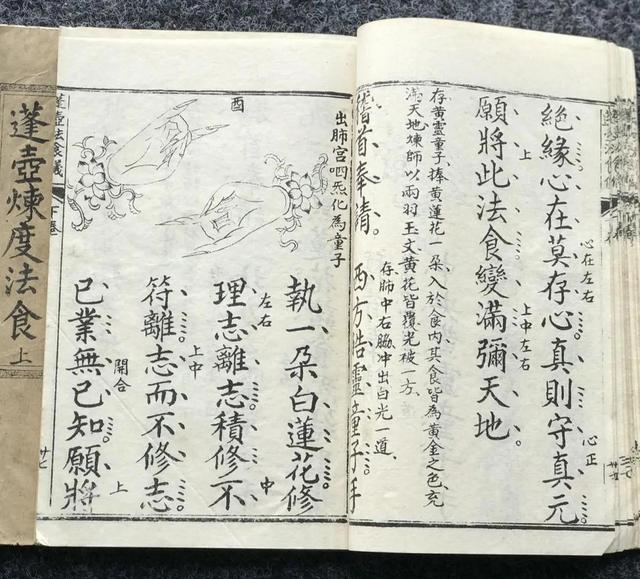 絶緣心在莫存心真則守真元
心在左右
心正
願將此法食變滿彌天地
上
上中左右
存黄靈童子捧黄蓮花一朶入於食内其食皆為黄金之色充
滿天地煉師以兩羽玉文黄花皆覆光被一方
存肺中右脇冲出白光一道
稽首奉請西方皓靈童子手
出肺宫呬炁化為童子
酉
執一朶白蓮花修
中
理志離志積修不
左右
符離志而不修志
上中
已業無已知願將
開合
上
蓬壺法食儀
下卷
廿七
蓬壺煉度法食
上